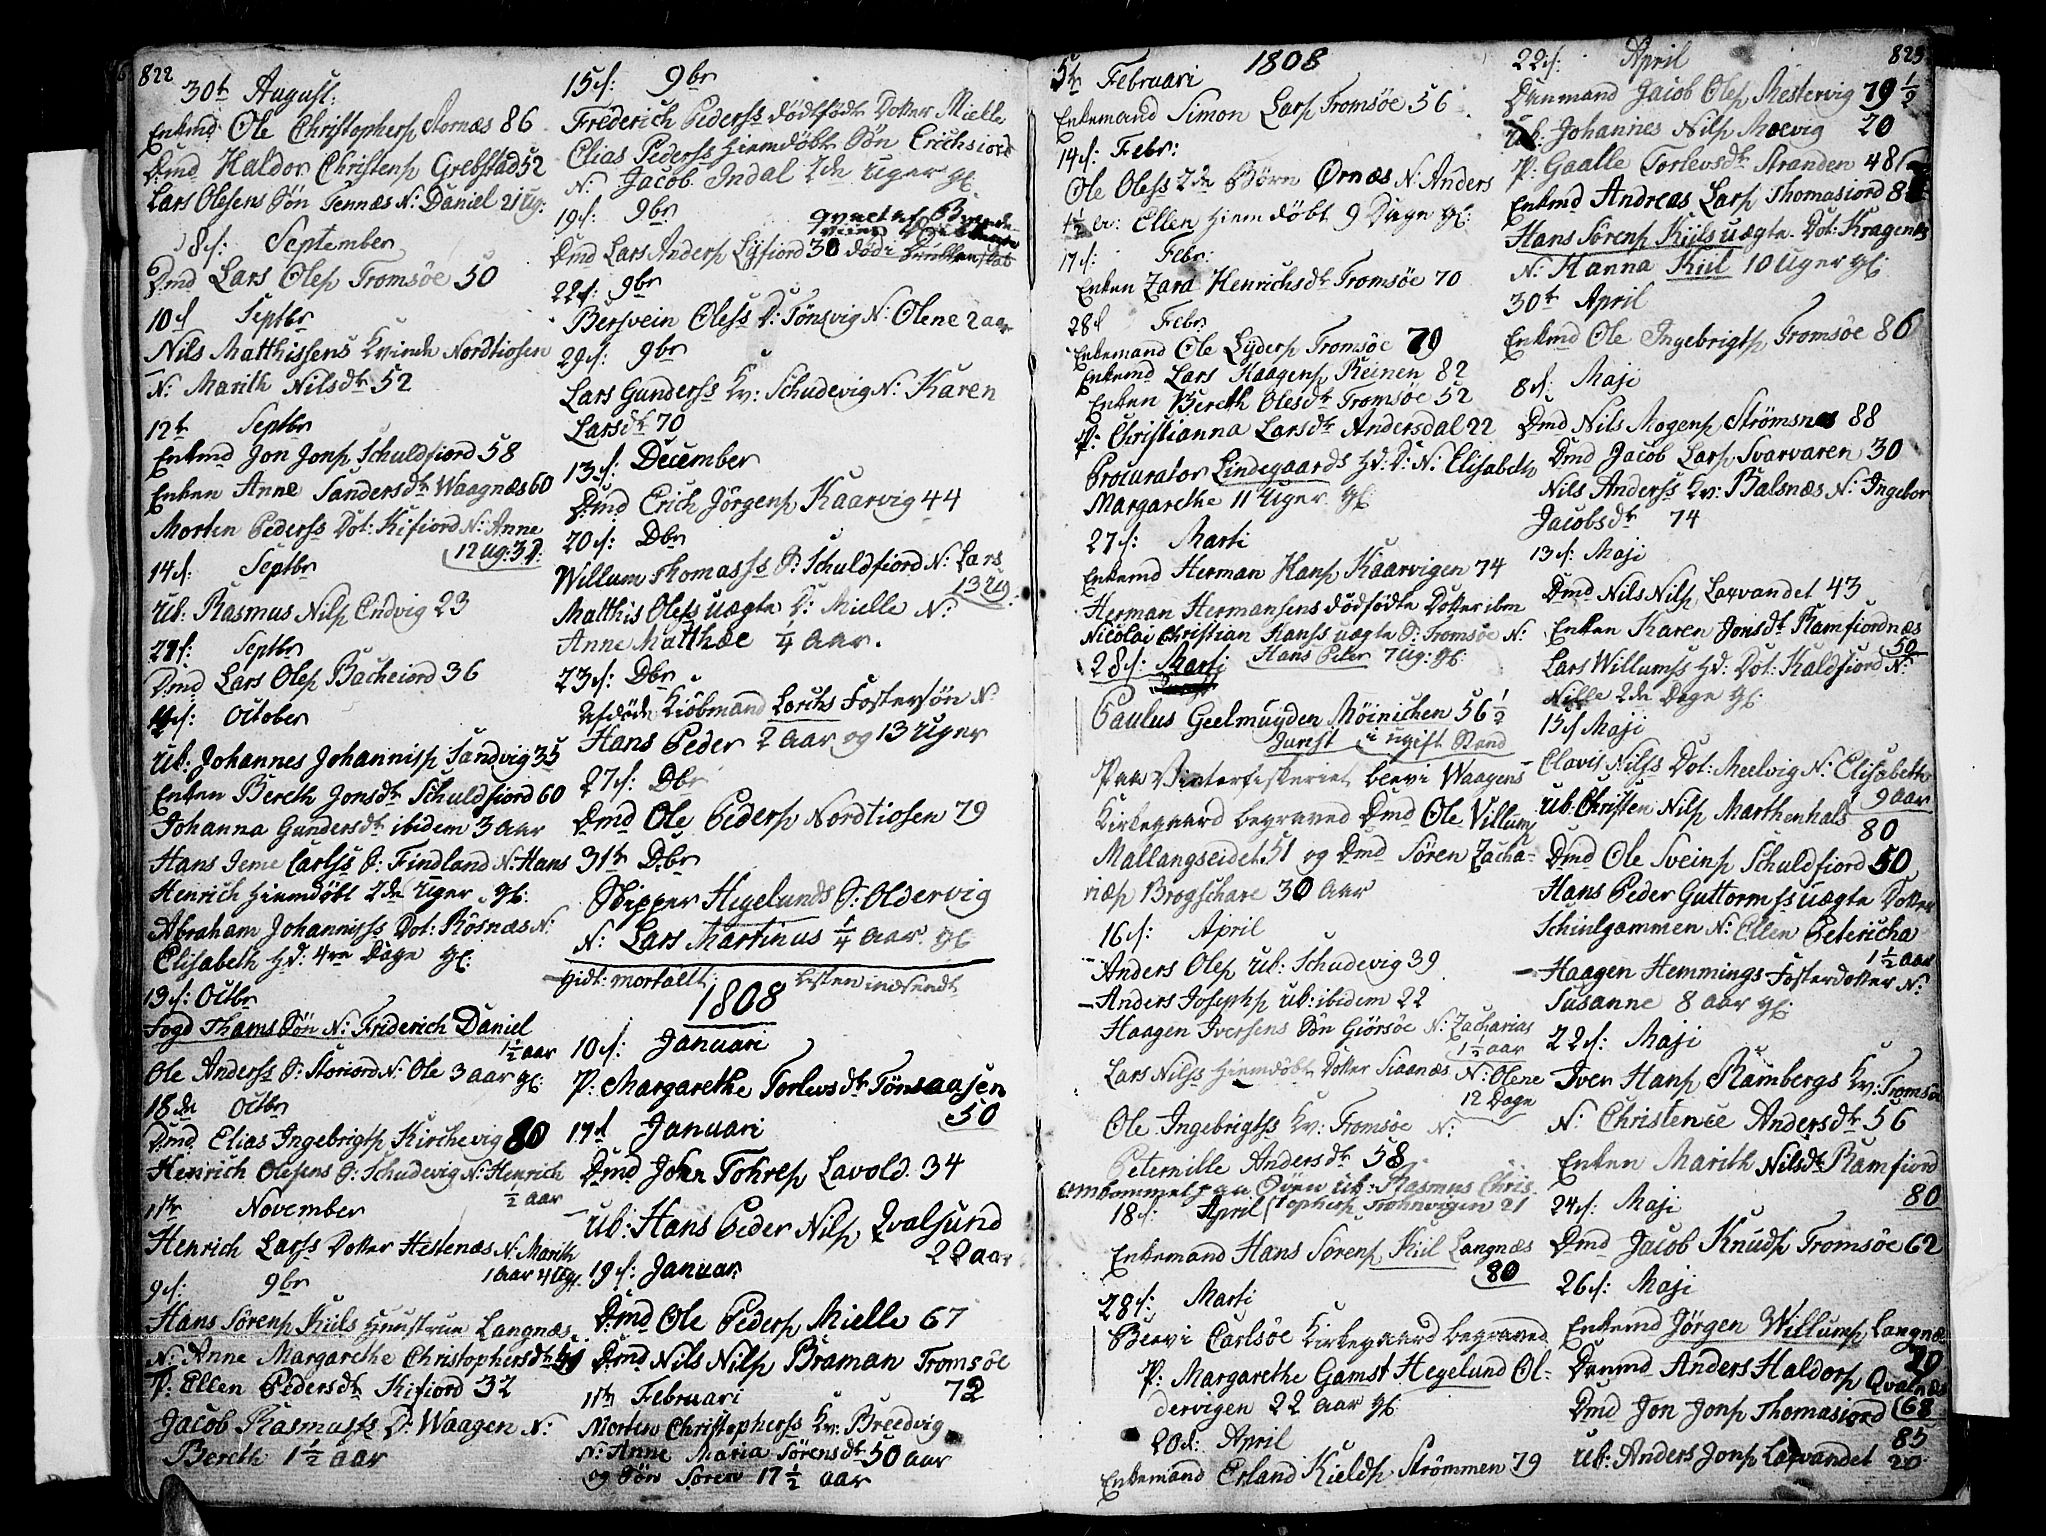 822
30t August:
Enkmd Ole Christophersp Stornæs 86
Dmd Haldor Christensp Grebstad 52
Lars Olesens Søn Tennæs N: Daniel 21 ug:
8d: September
Dmd Lars Olsp Tromsøe 50
10d Septbr
Nils Matthissens Kvinde Nordtiosen
N: Marith Nilsdtr 52
12t Septbr
Enkmd Jon Jonsp Schuldfiord 58
Enken Anne Sandersdtr Waagnæs 60
Morten Pederss Dot: Kifiord N: Anne
12 ug: 3 d.
14d: Septbr
ub: Rasmus Nilsp Endvig 23
Septbr
Dmd Lars Olsp Bacheiord 36
October
ub: Johannes Johannisp Sandvig 35
Enken Bereth Jonsdtr Schuldfiord 60
Johanna Gundersdtr ibidem 3 aar
Hans Jeme Carlss S: Findland N: Hans
Henrich Hiemdøbt 2de Uger gl:
Abraham Johanniss Dot: Røsnæs N:
Elisabeth Hd: 4re Dage gl:
13d: Octbr
Fogd Thams Søn N: Friderich Daniel
1½ aar
Ole Anderss S: Storiord N: Ole 3 aar gl:
18de Octbr
Dmd Elias Ingebrigtsp Kirchevig 80
Henrich Olesens S: Schudevig N: Henrich
½ aar
11te November
Henrich Larss Dotter Hestenæs N: Marith
1 Aar 4 Ugr
9d: 9br
Hans Sørensp Kiils Huustrue Langnæs
N: Anne Margarethe Christophersdtr
P: Ellen Pedersdtr Kifiord 32
Jacob Rasmuss D: Waagen N:
Bereth 1½ aar
15d: 9br
Frederich Pederss dødfødt Dotter Mielle
Elias Pederss Hiemdøbt Søn Erichsiord
N: Jacob Indal 2de Uger gl:
19d: 9br
Dmd Lars Andersp Lysfiord 30 død i
22d: 9br
Bersvein Oless D: Tønsvig N: Olene 2 aar
29d: 9br
Lars Gunderss Kv: Schudevig N: Karen
Larsdtr 70
13d: December
Dmd Erich Jørgensp Kaarvig 44
20d: Dbr
Willum Thomass S: Schuldfiord N: Lars
13 ug
Matthis Oless uægte D: Mielle N:
Anne Matthæ ¼ Aar.
23d: Dbr
Afdøde Kiøbmand Lorchs Fostersøn N:
Hans Peder 2 Aar og 13 Uger
27d: Dbr
Dmd Ole Pedersp Nordtiosen 79
31te Dbr
Skipper Hegelunds S: Oldervig
N: Lars Martinus ¼ aar. gl
hidt: mortalit: Listen indsendt
1808
10d: Januari
P: Margarethe Torlevsdtr Tønsaasen
50
17d Januari
Dmd John Tohresp Lavold. 34
ub: Hans Peder Nilsp Qvalsund
22 aar
19d: Januar
Dmd Ole Pedersp Mielle 67
Dmd Nils Nilsp Braman Tromsøe
72
11te Februari
Morten Christopherss Kv: Breedvig
N: Anne Maria Sørensdtr 50 aar
og Søn Søren 17½ aar
1808
5te Februari
Enkemand Simon Larsp Tromsøe 56
14d: Febr:
Ole Oless 2de Børn Ørnæs N: Anders
½ ar: Ellen Hiemdøbt 9 Dage gl:
17d: Febr:
Enken Zara Henrichsdtr Tromsøe 70
28d Febr
Enkemand Ole Lydersp Tromsøe 79
Enkemd Lars Haagensp Reinen 82
Enken Bereth Olesdtr Tromsøe 52
P: Christianna Larsdtr Andersdal 22
Procurator Lindegaards Hd: D: N: Elisabeth
Margarethe 11 Uger gl:
27d: Marti
Enkemd Herman Hansp Kaarvigen 74
Herman Hermansens dødfødte Dotter ibm
Nicolai Christian Hanss uægte S: Tromsøe N:
28d: Marti Hans Peter 7 Ug: gl:
Paulus Geelmuyden Möinichen 56½
Jurist i ugift Stand
Paa Vinterfiskeriet blevi Waagens
Kirkegaard begraved Dmd Ole Villumsp
Mallangseidet. 51 og Dmd Sören Zacha-
riæsp Brogskare 30 Aar
16d: April
Anders Olsp ub: Schudevig 39
Anders Josephsp ub: ibidem 22
Haagen Iversens Søn Giörsøe N: Zacharias
1½ aar
Lars Nilss Hiemdøbt Dotter Siaanæs N: Olene
12 Dage
Ole Ingebrigtss Kv: Tromsøe N:
Peternille Andersdtr 58
ombommel paa Søen ub: Rasmus Chris-
18d: April tophersp Trohnvigen 21
Enkemand Hans Sørensp Kiil Langnæs
80
28d: Marti
Blevi Carlsøe Kirkegaard begraved
P: Margarethe Gamst Hegelund Ol-
dervigen 22 Aar gl
20d: April
Enkemand Erland Kieldsp Strømmen 79
823
22d: April
Danmand Jacob Olsp Mestervig 79½
ub: Johannes Nilsp Moevig 20
P: Gaalle Torlevsdtr Stranden 48
Enkmd Andreas Larsp Thomasiord
Hans Sørensp Kiils uægte Dot: Kragenæs
N: Hanna Kiil 10 Uger gl:
30t April
Enkmd Ole Ingebrigtsp Tromsøe 86
8d: Maji
Dmd Nils Mogensp Strømsnæs 88
Dmd Jacob Larsp Svarvaren 30
Nils Anderss Kv: Balsnæs N: Ingebor
Jacobsdtr 74
13d: Maji
Dmd Nils Nilsp Laxvandet 43
Enken Karen Jonsdtr Ramfiordnæs
50
Lars Willumss Hd: Dot: Kaldfiord N:
Nille 2de Dage gl:
15d Maji
Clavis Nilss Dot: Meelvig N: Elisabeth
9 aar
ub. Christen Nilsp Marthenhals
80
Dmd Ole Sveinsp Schuldfiord 50
Hans Peder Guttormss uægte Dotter
Schinlgammen N: Ellen Petericha
1½ aar
Haagen Hemmings Fosterdotter N:
Susanne 8 aar gl:
22d: Maji
Iver Hansp Rambergs Kv: Tromsøe
N: Christence Andersdtr 56
Enken Marith Nilsdtr Ramfiord
80
24d: Maji
Dmd Jacob Knudsp Tromsøe 62
26d: Maji
Enkemd Jørgen Willumsp Langnæs
79
Danmd Anders Haldorsp Qvalnæs
68
Dmd Jon Jonsp Thomasiord
85
ub: Anders Jonsp Laxvandet 20